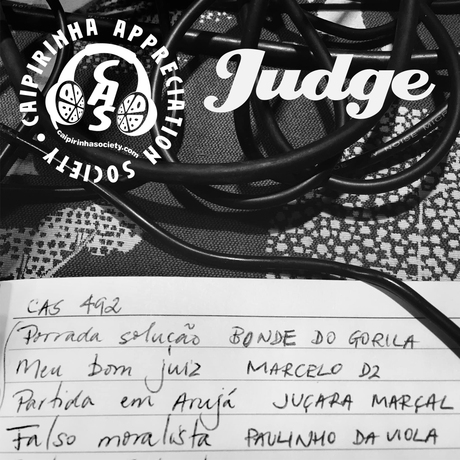 CAIPIRINHA APPRECIATION SOCIETY
CAS
caipirinhasociety.com
Judge
CAS 492
Porrada solução BONDE DO GORILA
Meu bom juiz MARCELO D2
Partida em Arujá JUÇARA MARÇAL
Falso moralista PAULINHO DA VIOLA